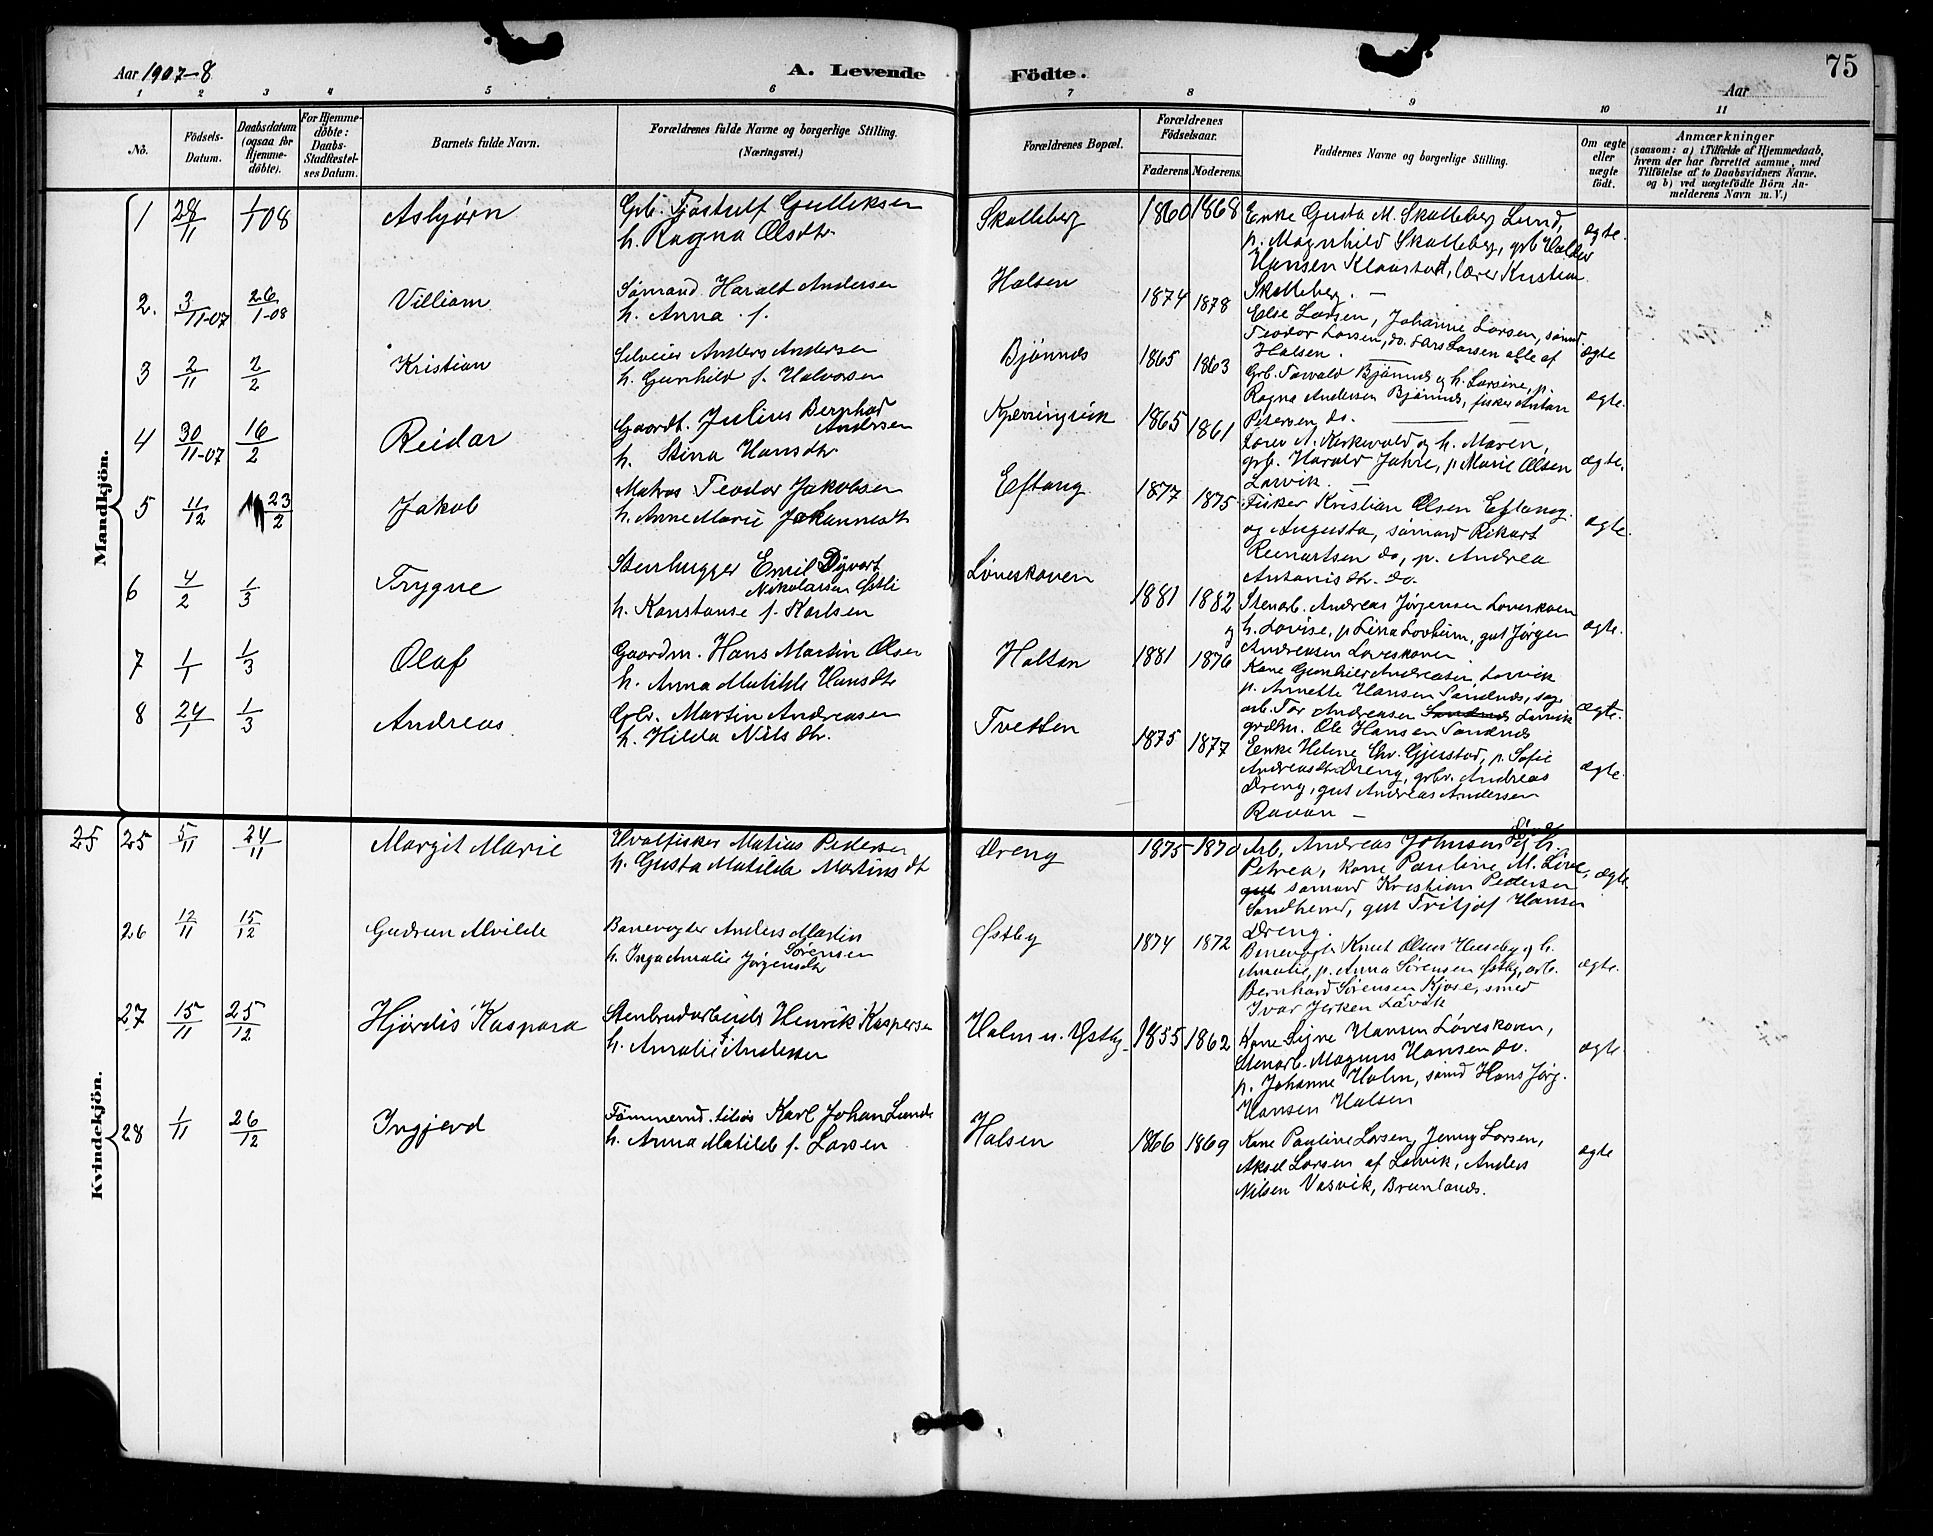 Aar 1907-8
A. Levende
Födte.
75
Aar
1 2 3 4 5 6 7 8 9 10 11
No.
Födsels-
Datum.
Daabsdatum
(ogsaa for
Hjemme-
döbte).
For Hjemme-
döbte:
Daabs-
Stadfæstel-
ses Datum.
Barnets fulde Navn.
Forældrenes fulde Navne og borgerlige Stilling.
(Næringsvei.)
Forældrenes Bopæl.
Forældrenes
Födselsaar.
Faderens Moderens
Faddernes Navne og borgerlige Stilling.
Om ægte
eller
uægte
födt.
Anmærkninger
(saasom: a) i Tilfælde af Hjemmedaab,
hvem der har forrettet samme, med
Tilföielse af to Daabsvidners Navne,
og b) ved uægtefödte Börn An-
melderens Navn m. V.)
Mandkjön.
1 28/11 1/1 08 Asbjørn
Grb. Fjostulf Gulliksen
h. Ragna Olsdtr
Skalleberg 1860 1868
Enke Gusta M. Skalleberg Lund,
p. Magnhild Skalleberg, grb Halvor
Hansen Klaastad, lærer Kristian
Skalleberg. —
ægte.
2. 3/11-07 26/1-08 Villiam
Sømand Harald Andersen
h. Anna f.
Halsen 1874 1878
Else Larsen, Johanne Larsen, sømd.
Teodor Larsen, do. Lars Larsen alle af
Halsen. —
ægte
3 2/11 2/2 Kristian
Selveier Anders Andersen
h. Gunhild f. Halvorsen
Bjønnes 1865 1863
Grb. Torvald Bjønnes og h. Larsine, p.
Ragna Andersen Bjønnes, fisker Anton
Petersen do. —
ægte.
4 30/11-07 16/2 Reidar
Gaardb. Julius Bernhard
Andersen
h. Stina Hansdtr
Kjerringvik 1865 1861
Lærer A. Kirkevold og h. Maren,
grb. Harald Jahre, p. Marie Olsen
Larvik. —
ægte.
5 11/12 23/2 Jakob
Matros Teodor Jakobsen
h. Anne Marie Johannesdt
Eftang 1877 1875
Fisker Kristian Olsen Eftang
og Augusta, sømand Rikart
Reinartsen do, p. Andrea
Antonisdtr. do.
ægte.
6 4/2 1/3 Trygve
Stenhugger Emil Dyvart
Nikolaisen Østli
h. Konstanse f. Karlsen
Løveskoven 1881 1882
Stenarb. Andreas Jørgensen Loveskoven
og h. Lovise, p Lina Lovheim, gut Jørgen
Andreasen Loveskoven
ægte.
7 1/1 1/3 Olaf
Gaardm. Hans Martin Olsen
h. Anna Matilde Hansdtr
Halsen 1881 1876
Kone Gunhild Andreasen, Larvik
p. Annette Hansen Sandnes, sag
arb. Tor Andreasen Sandnes Larvik
grdm. Ole Hansen Sandnes
ægte.
8 24/1 1/3 Andreas
Grb. Martin Andreasen
h. Hilda Nilsdtr.
Tvetten 1875 1877
Enke Helene Chr. Gjerstad, p. Sofie
Andreasdtr Dreng, grbr. Andreas
Dreng, gut Andreas Andersen
Ravan —
ægte.
Kvindekjön.
25 25 5/11 24/11 Margit Marie
Hvalfisker Matias Pedersen
h. Gusta Matilde Martinsdt
Dreng 1875 1870
Arb. Andreas Johnsen Løve og h.
Petrea, kone Pauline M. Løve,
gut sømand Kristian Pedersen
Sandherred, gut Fritjof Hansen
Dreng.
ægte.
26 12/11 15/12 Gudrun Alvilde
Banevogter Anders Martin
Sørensen
h. Inga Amalie Jørgensdtr
Østby 1874 1872
Banevogter Knut Olsen Huseby og h.
Amalie, p. Anna Sørensen Østby, arb.
Bernhard Sørensen Kjose, smed
Ivar Jerken Larvik
ægte.
27 15/11 25/12 Hjørdis Kaspara
Stenbrudarbeider Henrik Kaspersen
h. Amalie f. Andersen
Holm u. Østby 1855 1862
Kone Signe Hansen Løveskoven,
Stenarb. Magnus Hansen do.
p. Johanne Holm, sømd Hans Jørg.
Hansen Halsen
ægte.
28 1/11 26/12 Ingjerd
Tømmermd. tilsjøs Karl Johan Lunde
h. Anna Matilde f. Larsen
Halsen 1866 1869
Kone Pauline Larsen, Jenny Larsen,
Aksel Larsen af Larvik, Anders
Nilsen Vasvik, Brunlanes.
ægte